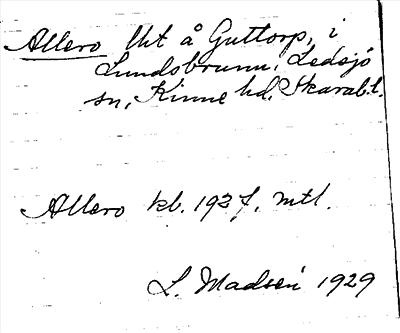 Allero Uht å Guttorp, i
Lundsbrunn, Ledsjö
sn, Kinne hd. Skarab.l.
Allero kb. 1927, mtl.
L. Madsén 1929